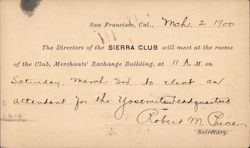 San Francisco, Cal., Mch 2 1900
The Directors of the SIERRA CLUB will meet at the rooms
of the Club, Merchants' Exchange Building, at 11 A.M. on
Saturday, March 3rd to elect an
attendant for the Yosemite headquarters
Robert M. Price
Secretary.